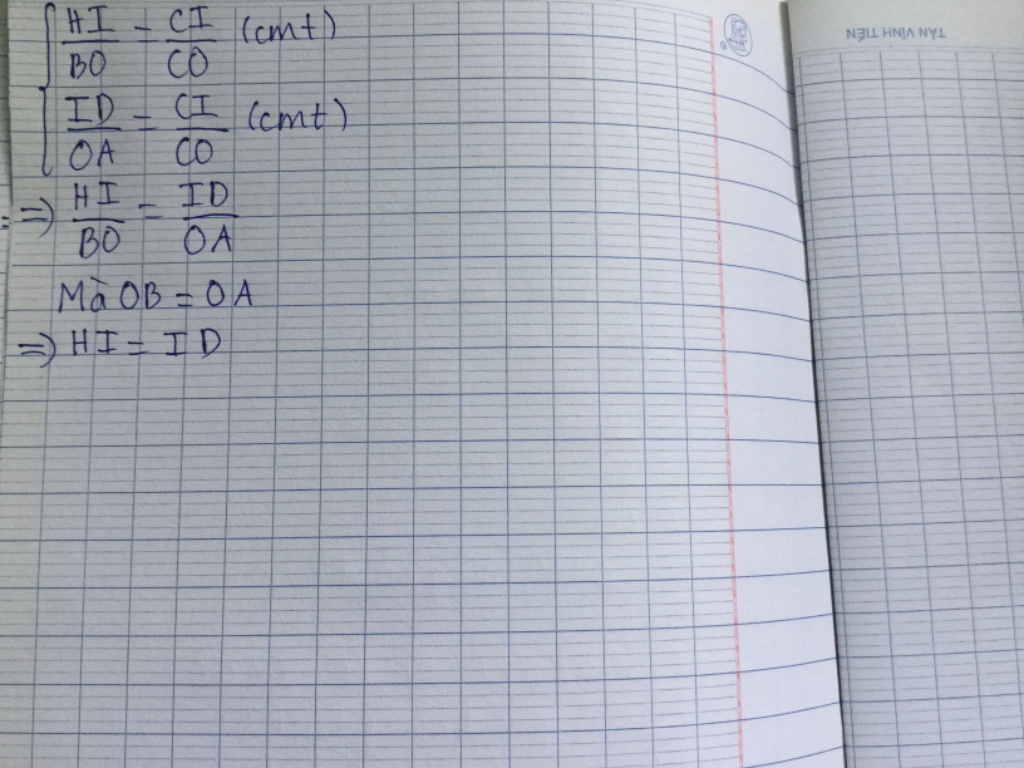 { HI/BO = CI/CO (cmt)
ID/OA = CI/CO (cmt)
=> HI/BO = ID/OA
Mà OB = OA
=> HI = ID
TÂN VĨNH TIẾN